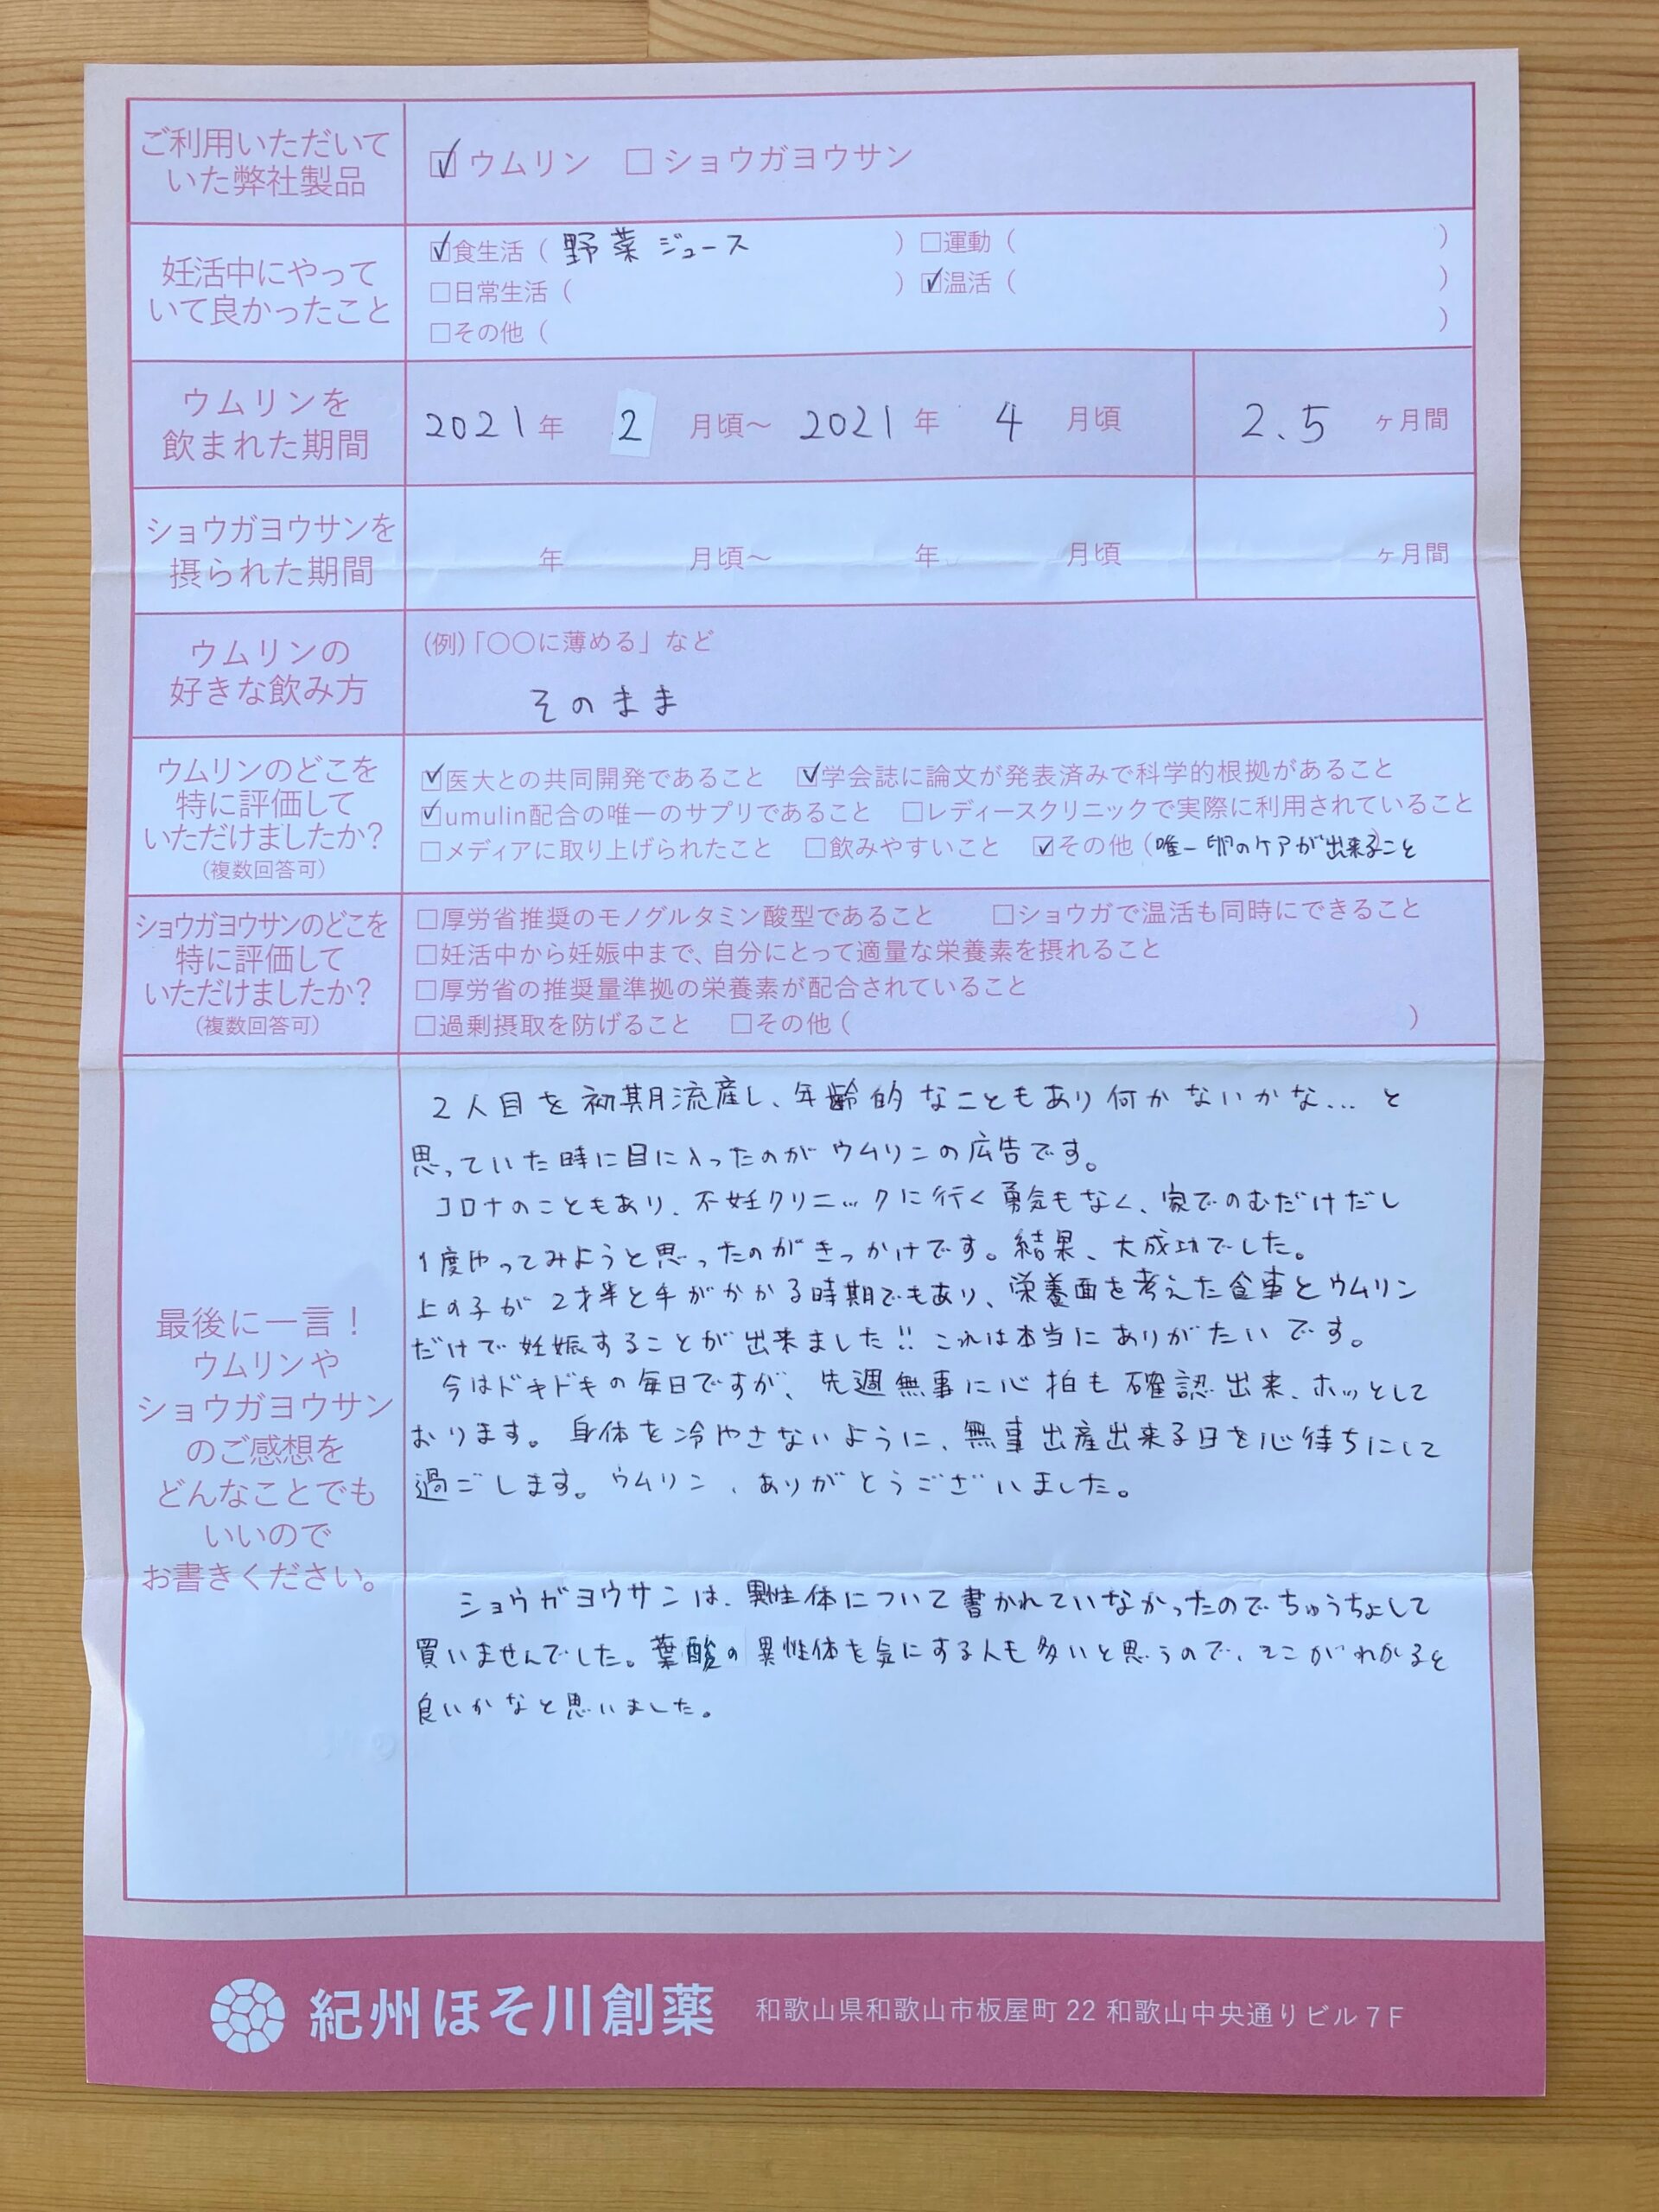 ご利用いただいて
いた弊社製品
☑ウムリン □ショウガヨウサン
妊活中にやって
いて良かったこと
☑食生活（野菜ジュース ）□運動（ ）
□日常生活（ ）☑温活（ ）
□その他（ ）
ウムリンを
飲まれた期間
2021年 2 月頃～ 2021年 4 月頃 2.5 ヶ月間
ショウガヨウサンを
摂られた期間
年 月頃～ 年 月頃 ヶ月間
ウムリンの
好きな飲み方
(例)「〇〇に薄める」など
そのまま
ウムリンのどこを
特に評価して
いただけましたか?
(複数回答可)
☑医大との共同開発であること ☑学会誌に論文が発表済みで科学的根拠があること
☑umulin配合の唯一のサプリであること □レディースクリニックで実際に利用されていること
□メディアに取り上げられたこと □飲みやすいこと ☑その他（唯一卵のケアが出来ること）
ショウガヨウサンのどこを
特に評価して
いただけましたか?
(複数回答可)
□厚労省推奨のモノグルタミン酸型であること □ショウガで温活も同時にできること
□妊活中から妊娠中まで、自分にとって適量な栄養素を摂れること
□厚労省の推奨量準拠の栄養素が配合されていること
□過剰摂取を防げること □その他（ ）
最後に一言！
ウムリンや
ショウガヨウサン
のご感想を
どんなことでも
いいので
お書きください。
2人目を初期流産し、年齢的なこともあり何かないかな…と
思っていた時に目に入ったのがウムリンの広告です。
コロナのこともあり、不妊クリニックに行く勇気もなく、家でのむだけだし
1度やってみようと思ったのがきっかけです。結果、大成功でした。
上の子が2才半と手がかかる時期でもあり、栄養面を考えた食事とウムリン
だけで妊娠することが出来ました!!これは本当にありがたいです。
今はドキドキの毎日ですが、先週無事に心拍も確認出来、ホッとして
おります。身体を冷やさないように、無事出産出来る日を心待ちにして
過ごします。ウムリン、ありがとうございました。
ショウガヨウサンは、異性体について書かれていなかったのでちゅうちょして
買いませんでした。葉酸の異性体を気にする人も多いと思うので、そこがわかると
良いかなと思いました。
紀州ほそ川創薬 和歌山県和歌山市板屋町22 和歌山中央通りビル7F